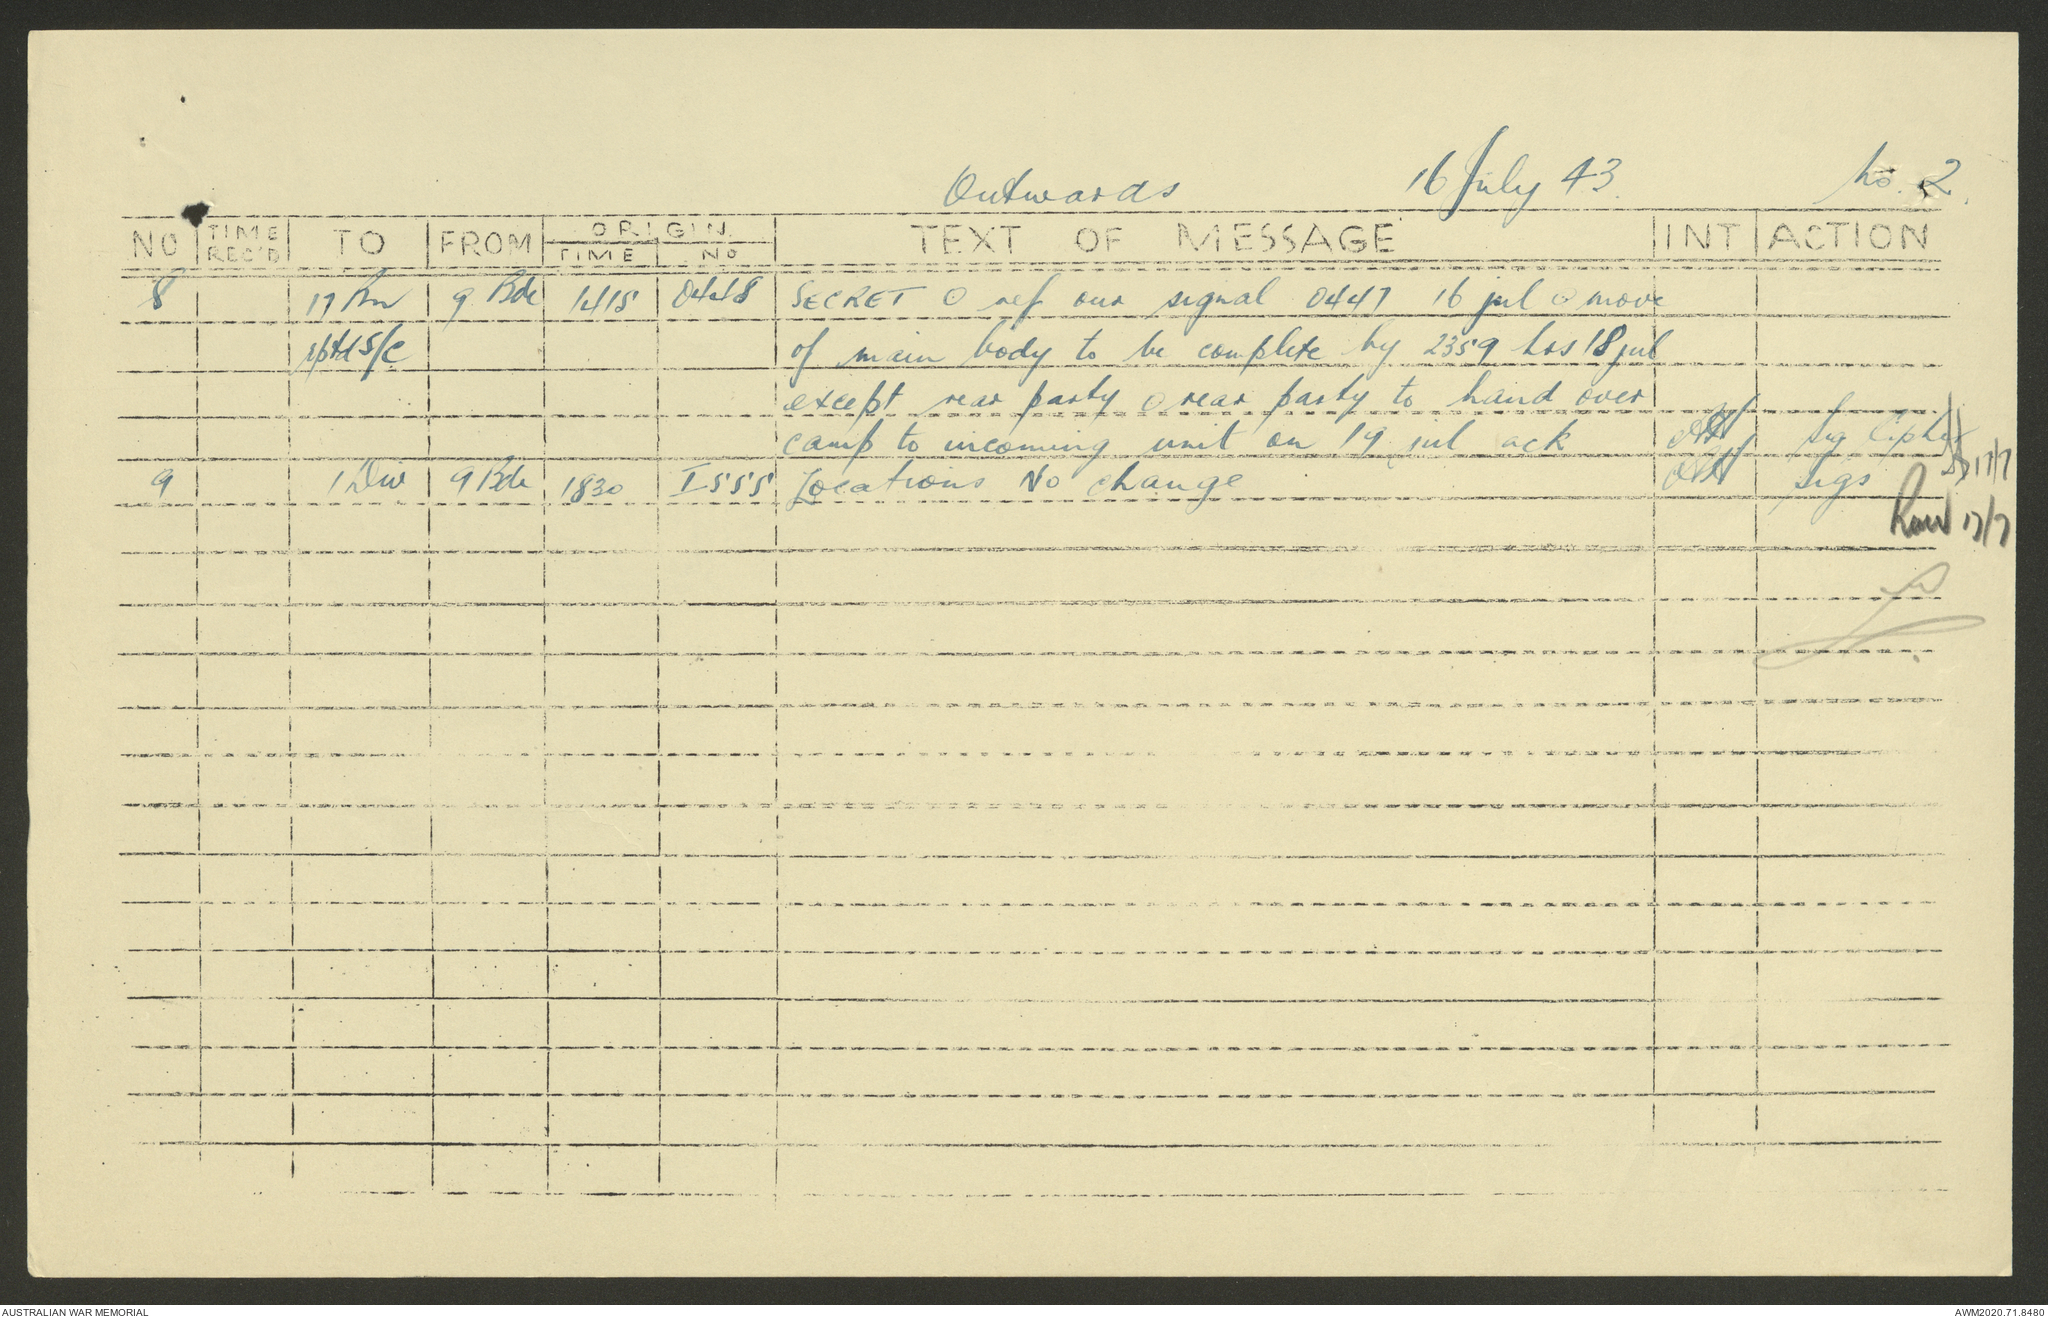 Outwards 16 July 43 No. 2.
NO TIME REC'D TO FROM ORIGIN TIME NO TEXT OF MESSAGE INT ACTION
8 17 Bn 9 Bde 1415 0448 SECRET O ref our signal 0447 16 jul O move
rptd S/C of main body to be complete by 2359 hrs 18 jul
except rear party O rear party to hand over
camp to incoming unit on 19 jul ack Sig Cipher
9 1 Div 9 Bde 1830 I555 Locations No change Sigs
17/7
17/7
AUSTRALIAN WAR MEMORIAL AWM2020.71.8480